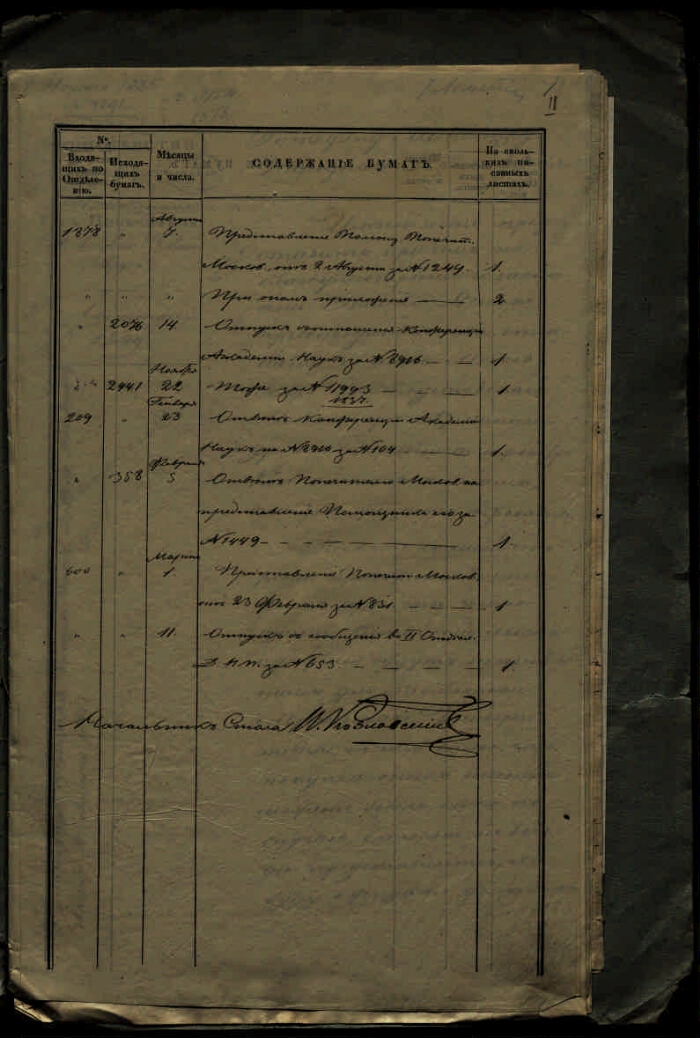 II
№.
Входя-
щихъ по
Отдѣле-
нію.
Исходя-
щихъ
бумагъ.
Мѣсяцы
и числа.
СОДЕРЖАНІЕ БУМАГЪ.
На сколь-
кихъ пи-
санныхъ
листахъ.
Августа
1378 " 7. Представленіе Помощ. Попечит.
Москов. отъ 2 Августа за № 1244. 1.
" " " При ономъ приложенія — 2
" 2076 14. Отпускъ отношенія Конференціи
Академіи Наукъ за № 8916 — — 1
Ноября
2941 22 Тоже за № 11993 — — — 1
1837.
Генваря
209 " 23 Отвѣтъ Конференціи Академіи
Наукъ на № 8916 за № 104 — 1.
Февраля
" 358 5 Отвѣтъ Попечителю Москов. на
представленіе Помощника его за
№ 1449 — — — 1
Марта
600 " 1. Представленіе Попечит. Москов.
отъ 23 Февраля за № 831 — — — 1
" " 11. Отпускъ сообщенія во II Отдѣл.
Д. Н. П. за № 653. — — — 1.
Начальникъ Стола